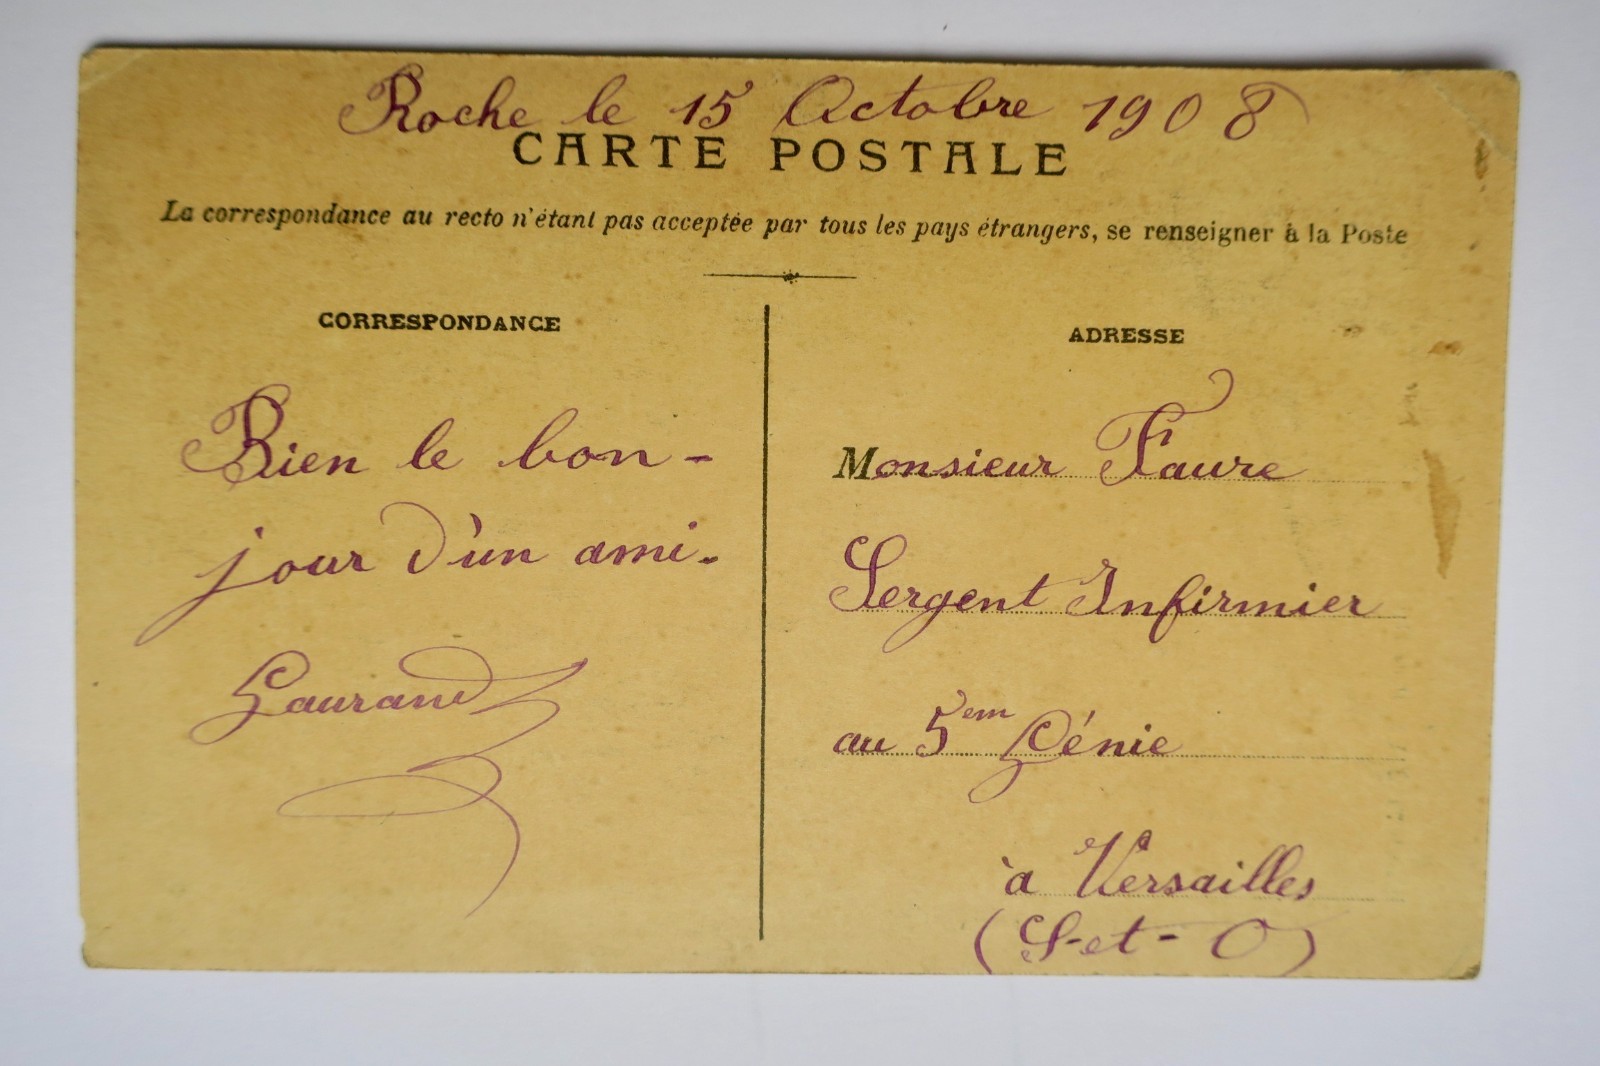 Roche le 15 Octobre 1908
CARTE POSTALE
La correspondance au recto n'étant pas acceptée par tous les pays étrangers, se renseigner à la Poste
CORRESPONDANCE
Bien le bon-
jour d'un ami.
Gaurand
ADRESSE
Monsieur Faure
Sergent Infirmier
au 5em Génie
à Versailles
(S-et-O)